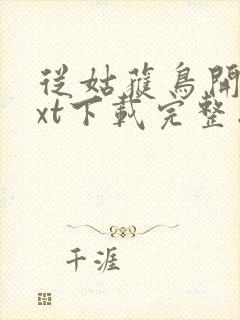 从姑獲鳥開
xt下載完整
千涯